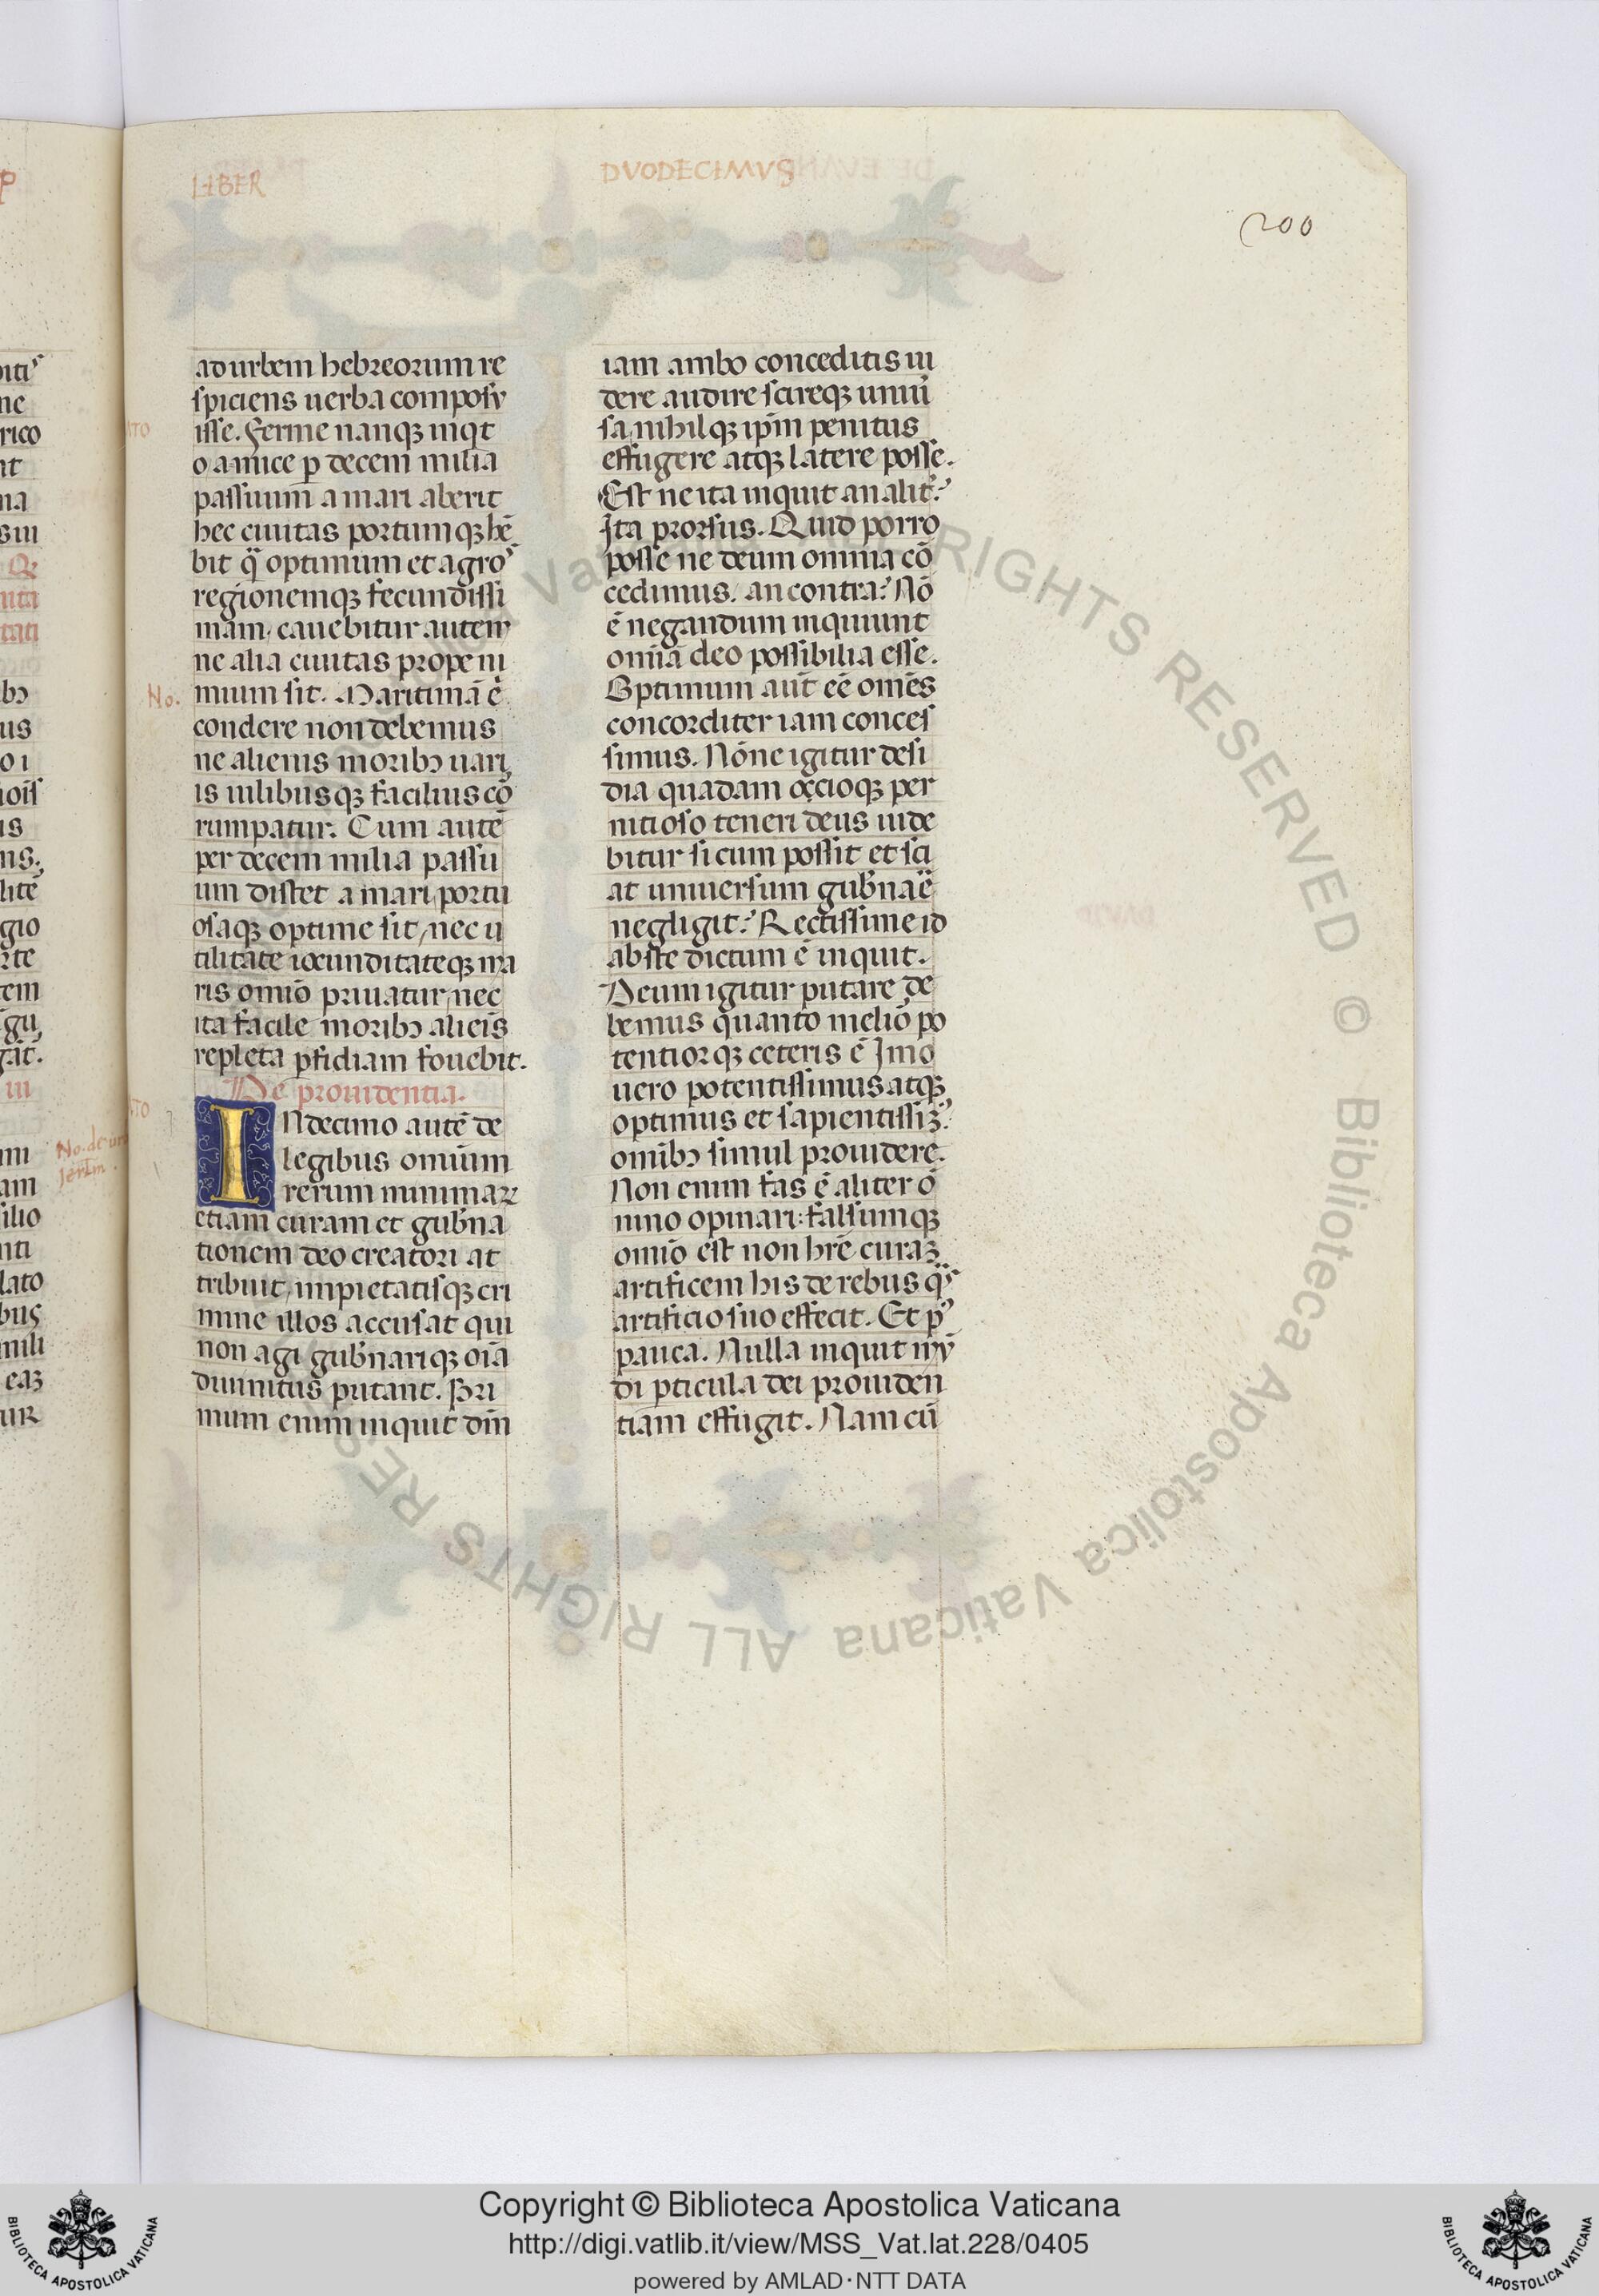 LIBER
DVODECIMVS
200
ad urbem hebreorum re
spiciens uerba composu
isse. Ferme nanqꝫ inqt
o amice ꝑ decem milia
passuum a mari aberit
hec ciuitas portumqꝫ hē
bit optimum et agros
regionemqꝫ fecundissi
mam. cauebitur autem
ne alia ciuitas prope ni
mium sit. Maritimā ē
No.
condere non debemus
ne alienis moribꝫ uari
is uilibusqꝫ facilius cō
rumpatur. Cum autē
per decem milia passu
um distet a mari portu
osaqꝫ optime sit, nec u
tilitate iocunditateqꝫ ma
ris omīo priuatur, nec
ita facile moribꝫ alieīs
repleta ꝑfidiam fouebit.
De prouidentia.
IN decimo autē de
legibus omnium
rerum minimaꝝ
etiam curam et gub̄na
tionem deo creatori at
tribuit, impietatisqꝫ cri
mine illos accusat qui
non agi gub̄nariqꝫ oīa
diuinitus putant. Pri
mum enim inquit dm̄
iam ambo conceditis ui
dere audire scireqꝫ uniū
sa, nihilqꝫ ip̄m penitus
effugere atqꝫ latere posse.
Est ne ita inquit an alit̄?
Ita prorsus. Quid porro
posse ne deum omnia cō
cedimus. an contra? Nō
ē negandum inquiunt
omīa deo possibilia esse.
Optimum aūt eē omēs
concorditer iam conces
simus. Nōne igitur desi
dia quadam ocioqꝫ per
nitioso teneri deus uide
bitur si cum possit et sci
at uniuersum gub̄nare
negligit? Rectissime id
abste dictum ē inquit.
Deum igitur putare de
bemus quanto meliō po
tentiorqꝫ ceteris ē Imo
uero potentissimus atqꝫ
optimus et sapientissiꝫ?
omībꝫ simul prouidere.
Non enim fas ē aliter ō
nino opinari: falsumqꝫ
omīo est non hr̄e curaꝫ
artificem his de rebus qͣs
artificio suo effecit. Et pꝰ
pauca. Nulla inquit mū
di ꝑticula dei prouiden
tiam effugit. Nam cū
No. de urb
Jerlm.
Copyright © Biblioteca Apostolica Vaticana
http://digi.vatlib.it/view/MSS_Vat.lat.228/0405
powered by AMLAD·NTT DATA
BIBLIOTECA APOSTOLICA VATICANA
BIBLIOTECA APOSTOLICA VATICANA